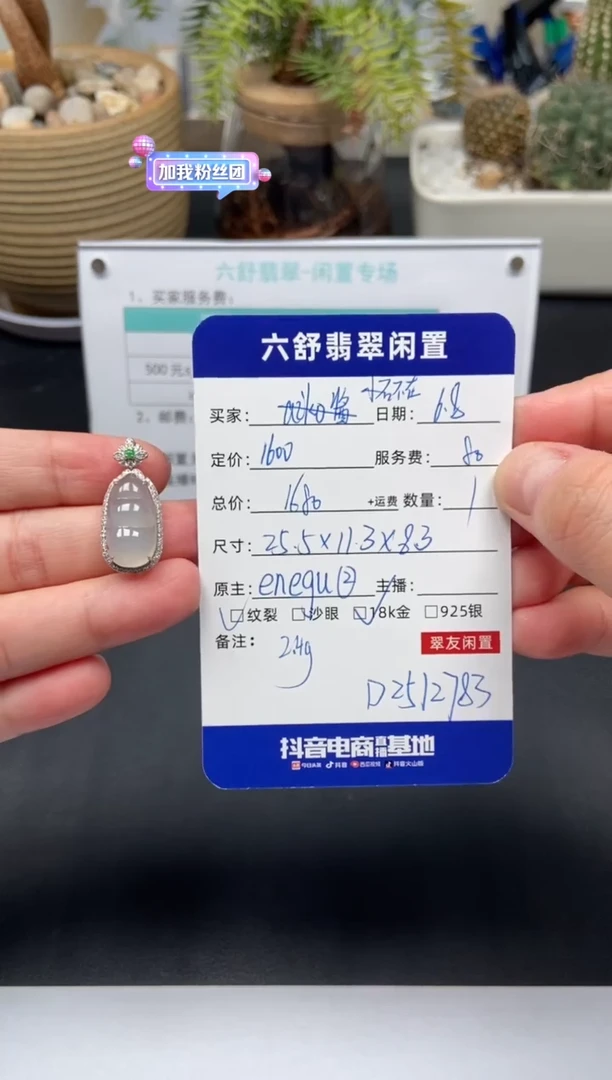 加我粉丝团
六舒翡翠-闲置专场
1、买家服务费：
500元
2、邮费
六舒翡翠闲置
买家： 日期：6.8
定价：1600 服务费：80
总价：1680 +运费 数量：1
尺寸：25.5×11.3×8.3
原主：enequ② 主播：
纹裂 沙眼 18k金 925银
备注：2.4g 翠友闲置
D2512783
抖音电商直播基地
今日头条 抖音 西瓜视频 抖音火山版